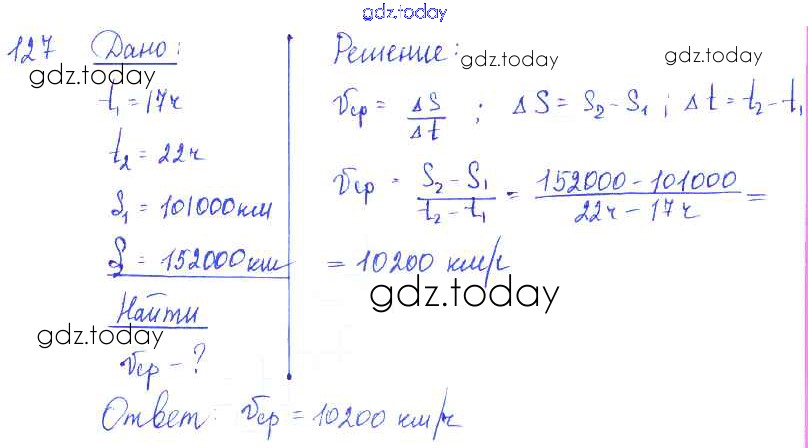 gdz.today
127 Дано:
gdz.today
t₁ = 17ч
t₂ = 22ч
S₁ = 101000км
S₂ = 152000км
Найти
gdz.today
υср - ?
Решение:
gdz.today
gdz.today
υср = ΔS / Δt ; ΔS = S₂ - S₁ ; Δt = t₂ - t₁
υср = (S₂ - S₁) / (t₂ - t₁) = (152000 - 101000) / (22ч - 17ч) =
= 10200 км/ч
gdz.today
Ответ: υср = 10200 км/ч